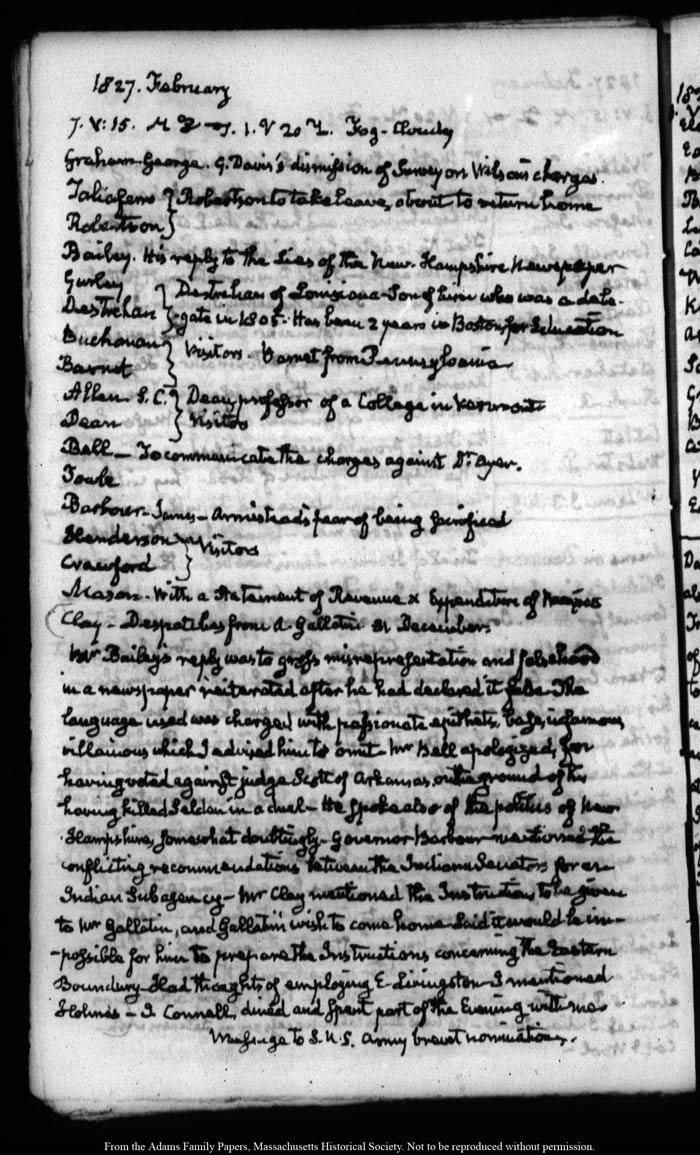 1827. February
7. V:15. I. V 20 Fog - Cloudy
Graham George. G. Davis's dismission of Survey on Wilson's charges.
Taliaferro } Robertson to take leave, about to return home
Robertson }
Bailey. His reply to the Lies of the New-Hampshire Newspaper
Gurley } Destrehan of Louisiana - Son of him who was a dele-
Destrehan } -gate in 1805. Has been 2 years in Boston for Education
Buchanan } Visitors - Barnet from Pennsylvania
Barnet }
Allen S.C. } Dean, professor of a College in Vermont
Dean } Visitors
Bell - To communicate the charges against Dr. Ayer.
Fowle
Barbour - James - Armistead's fear of being sacrificed
Henderson } Visitors
Crawford }
Mason - With a Statement of Revenue & Expenditure of
Clay - Despatches from A. Gallatin December.
Mr Bailey's reply was to gross misrepresentation and falsehood
in a newspaper reiterated after he had declared it false. The
language used was charged with passionate epithets, base, infamous,
villainous which I advised him to omit - Mr Bell apologized, for
having voted against judge Scott of Arkansas, on the ground of his
having killed Selden in a duel - He spoke also of the politics of New
Hampshire, somewhat doubtingly - Governor Barbour mentioned the
conflicting recommendations between the Indiana Senators for an
Indian Subagency - Mr Clay mentioned the Instructions to be given
to Mr Gallatin, and Gallatin's wish to come home - Said it would be im-
-possible for him to prepare the Instructions concerning the Eastern
Boundary - Had thoughts of employing E. Livingston - I mentioned
Holmes - J. Connell, dined and spent part of the Evening with me.
Message to S.U.S. Army brevet nominations.
From the Adams Family Papers, Massachusetts Historical Society. Not to be reproduced without permission.